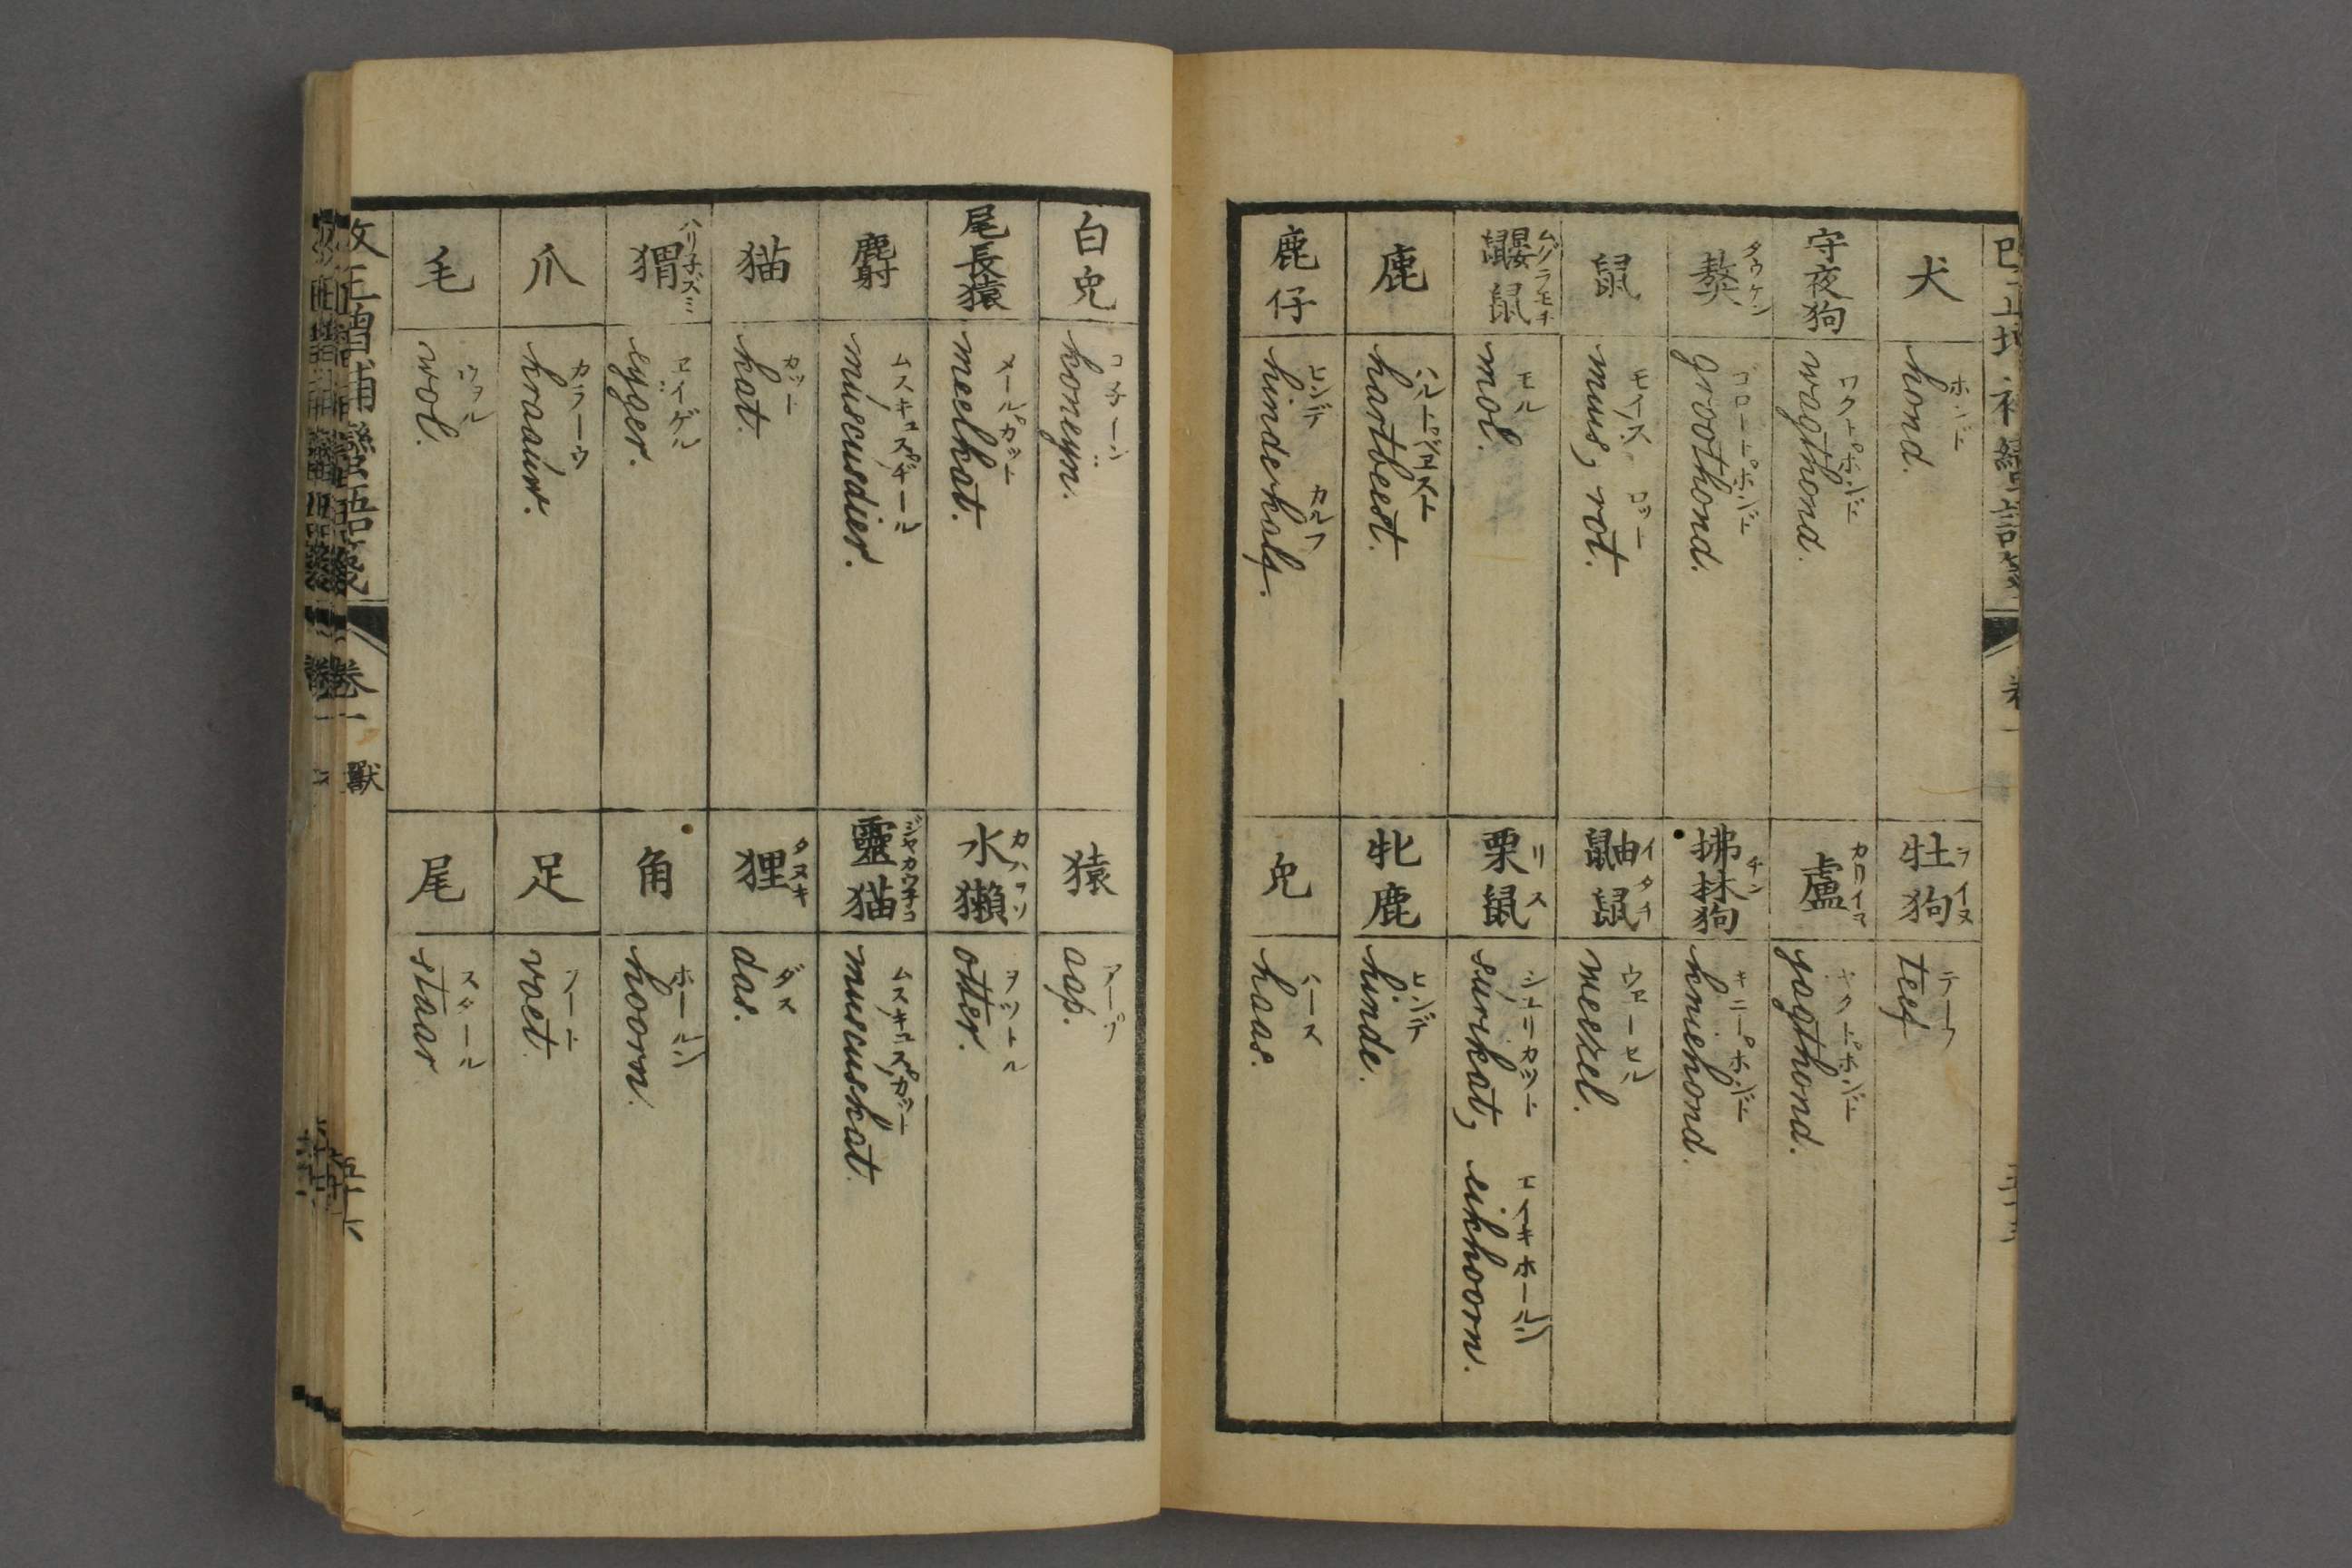 犬 ホンド hond.
守夜狗 ワクトホンド wagthond.
獒 タウケン ゴロートホンド groothond.
鼠 モイス ロット muus, rot.
鼴鼠 ムグラモチ モル mol.
鹿 ハルトベエスト hartbeest.
鹿仔 ヒンデ カルフ hindekalf.
牡狗 ヲイヌ テーフ teef
盧 カリイヌ ヤクトホンド jagthond.
拂菻狗 チン キニーホンド kniehond.
鼬鼠 イタチ ウェーセル weezel.
栗鼠 リス シュリカット エイキホールン surikat, eikhoorn.
牝鹿 ヒンデ hinde.
兎 ハース haas.
白兎 コネーン koneyn.
尾長猿 メールカット meelkat.
麝 ムスキュスヂール muscusdier.
猫 カット kat.
猬 ハリネズミ エイゲル eyger.
爪 カラーウ kraauw.
毛 ウヲル wol.
猿 アープ aap.
水獺 カハヲソ ヲットル otter.
靈猫 ジャカウネコ ムスキュスカット muscuskat.
狸 タヌキ ダス das.
角 ホールン hoorn.
足 フート voet.
尾 スタール staar
改正增補蠻語箋 卷一 獸